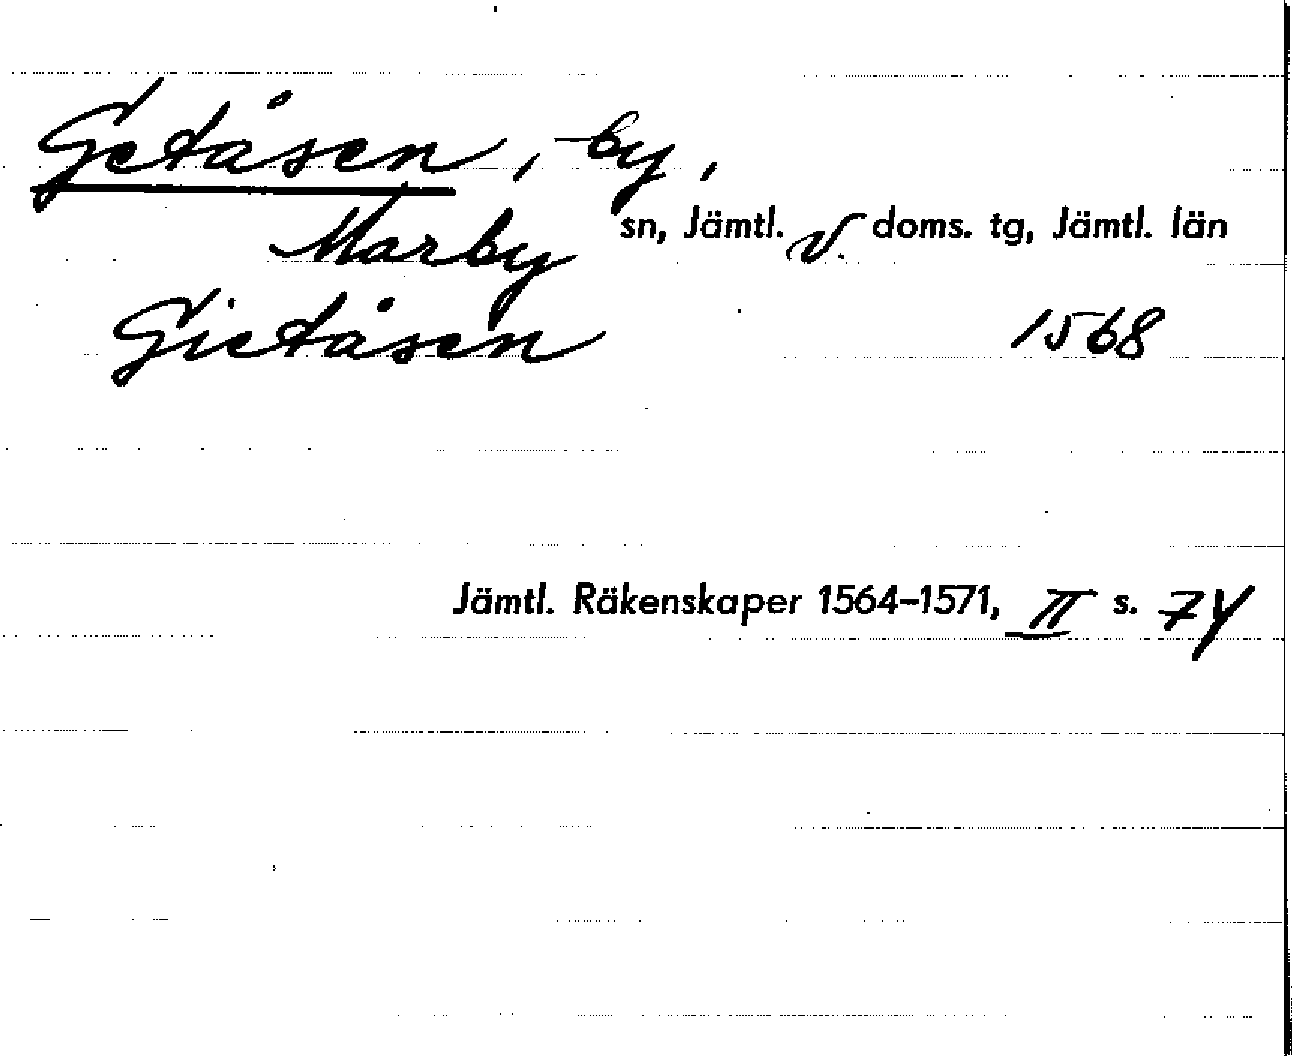 Getåsen, by,
Marby sn, Jämtl. v. doms. tg, Jämtl. län
Gietåsen 1568
Jämtl. Räkenskaper 1564-1571, II s. 74